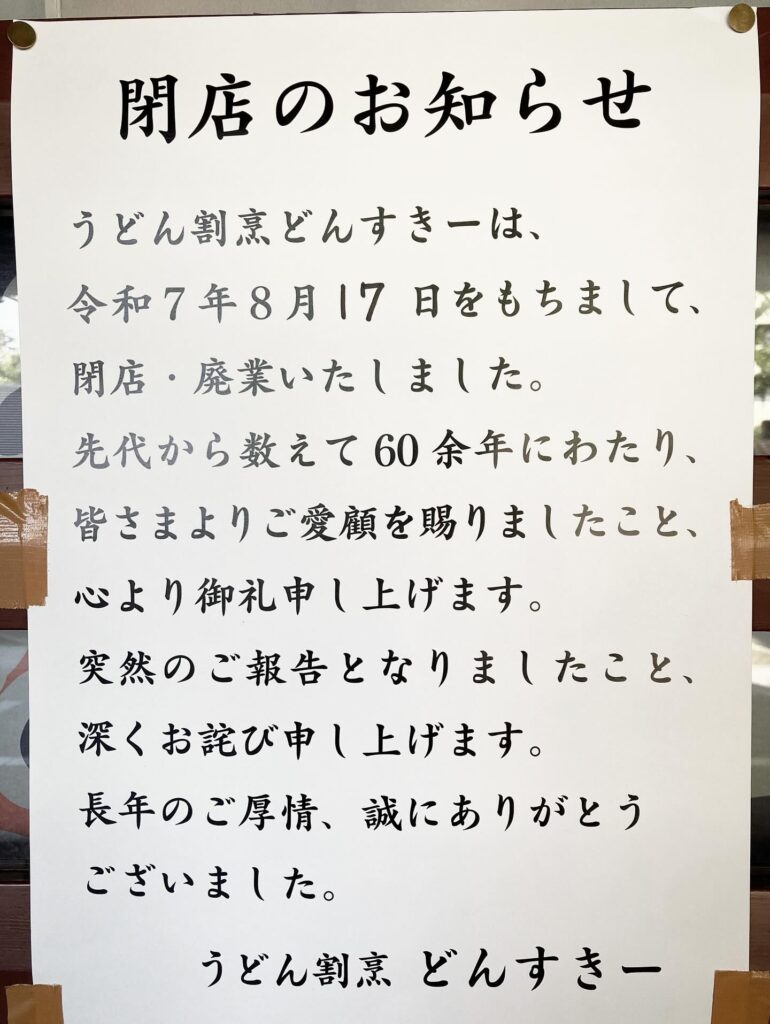 閉店のお知らせ
うどん割烹どんすきーは、
令和7年8月17日をもちまして、
閉店・廃業いたしました。
先代から数えて60余年にわたり、
皆さまよりご愛顧を賜りましたこと、
心より御礼申し上げます。
突然のご報告となりましたこと、
深くお詫び申し上げます。
長年のご厚情、誠にありがとう
ございました。
うどん割烹 どんすきー